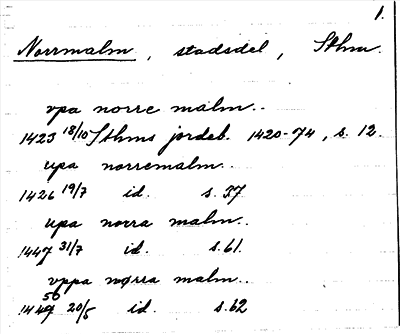 1.
Norrmalm, stadsdel, Sthm.
vpa norre malm..
1423 18/10 Sthms jordeb. 1420-74, s. 12.
upa norremalm..
1426 19/7 id. s. 37
upa norra malm..
1447 31/7 id. s. 61.
vppa norra malm..
1450 20/5 id. s. 62